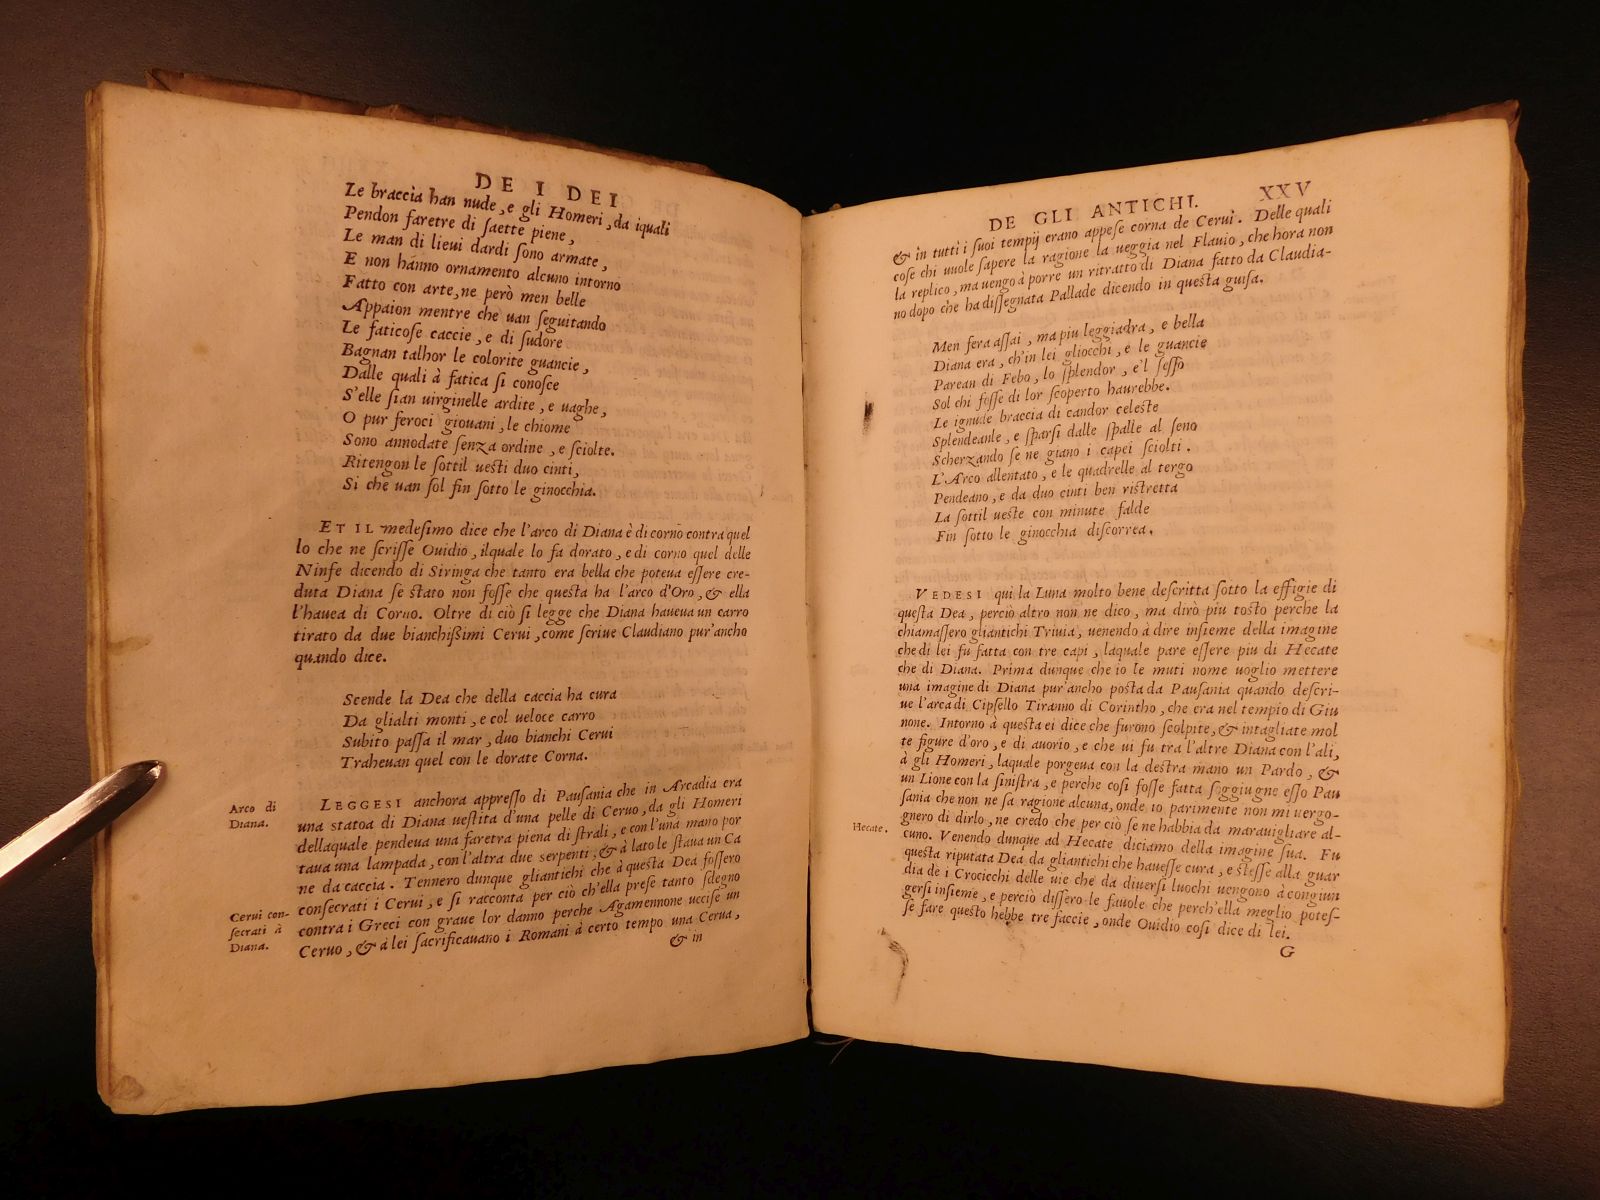 DE I DEI
Le braccia han nude, e gli Homeri, da iquali
Pendon faretre di saette piene,
Le man di lieui dardi sono armate,
E non hanno ornamento alcuno intorno
Fatto con arte, ne però men belle
Appaion mentre che uan seguitando
Le faticose caccie, e di sudore
Bagnan talhor le colorite guancie,
Dalle quali à fatica si conosce
S'elle sian uirginelle ardite, e uaghe,
O pur feroci giouani, le chiome
Sono annodate senza ordine, e sciolte.
Ritengon le sottil uesti duo cinti,
Si che uan sol fin sotto le ginocchia.
ET IL medesimo dice che l'arco di Diana è di corno contra quel
lo che ne scrisse Ouidio, ilquale lo fa dorato, e di corno quel delle
Ninfe dicendo di Siringa che tanto era bella che poteua essere cre-
duta Diana se stato non fosse che questa ha l'arco d'Oro, & ella
l'hauea di Corno. Oltre di ciò si legge che Diana haueua un carro
tirato da due bianchissimi Cerui, come scriue Claudiano pur'ancho
quando dice.
Scende la Dea che della caccia ha cura
Da glialti monti, e col ueloce carro
Subito passa il mar, duo bianchi Cerui
Traheuan quel con le dorate Corna.
Arco di
Diana.
LEGGESI anchora appresso di Pausania che in Arcadia era
una statoa di Diana uestita d'una pelle di Ceruo, da gli Homeri
dellaquale pendeua una faretra piena di strali, e con l'una mano por
taua una lampada, con l'altra due serpenti, & à lato le staua un Ca
ne da caccia. Tennero dunque gliantichi che à questa Dea fossero
consecrati i Cerui, e si racconta per ciò ch'ella prese tanto sdegno
contra i Greci con graue lor danno perche Agamennone uccise un
Ceruo, & à lei sacrificauano i Romani à certo tempo una Cerua,
Cerui con-
secrati à
Diana.
& in
DE GLI ANTICHI. XXV
& in tutti i suoi tempij erano appese corna de Cerui. Delle quali
cose chi uuole sapere la ragione la ueggia nel Flauio, che hora non
la replico, ma uengo à porre un ritratto di Diana fatto da Claudia-
no dopo che ha dissegnata Pallade dicendo in questa guisa.
Men fera assai, ma piu leggiadra, e bella
Diana era, ch'in lei gliocchi, e le guancie
Parean di Febo, lo splendor, e'l sesso
Sol chi fosse di lor scoperto haurebbe.
Le ignude braccia di candor celeste
Splendeanle, e sparsi dalle spalle al seno
Scherzando se ne giano i capei sciolti.
L'Arco allentato, e le quadrelle al tergo
Pendeano, e da duo cinti ben ristretta
La sottil ueste con minute falde
Fin sotto le ginocchia discorrea.
VEDESI qui la Luna molto bene descritta sotto la effigie di
questa Dea, perciò altro non ne dico, ma dirò piu tosto perche la
chiamassero gliantichi Triuia, uenendo à dire insieme della imagine
che di lei fu fatta con tre capi, laquale pare essere piu di Hecate
che di Diana. Prima dunque che io le muti nome uoglio mettere
una imagine di Diana pur'ancho posta da Pausania quando descri-
ue l'arca di Cipsello Tiranno di Corintho, che era nel tempio di Giu
none. Intorno à questa ei dice che furono scolpite, & intagliate mol
te figure d'oro, e di auorio, e che ui fu tra l'altre Diana con l'ali,
à gli Homeri, laquale porgeua con la destra mano un Pardo, &
un Lione con la sinistra, e perche cosi fosse fatta soggiugne esso Pau
sania che non ne sa ragione alcuna, onde io parimente non mi uergo-
gnero di dirlo, ne credo che per ciò se ne habbia da marauigliare al-
cuno. Venendo dunque ad Hecate diciamo della imagine sua. Fu
questa riputata Dea da gliantichi che hauesse cura, e stesse alla guar
dia de i Crocicchi delle uie che da diuersi luochi uengono à congiun
gersi insieme, e perciò dissero le fauole che perch'ella meglio potes-
se fare questo hebbe tre faccie, onde Ouidio cosi dice di lei.
Hecate.
G